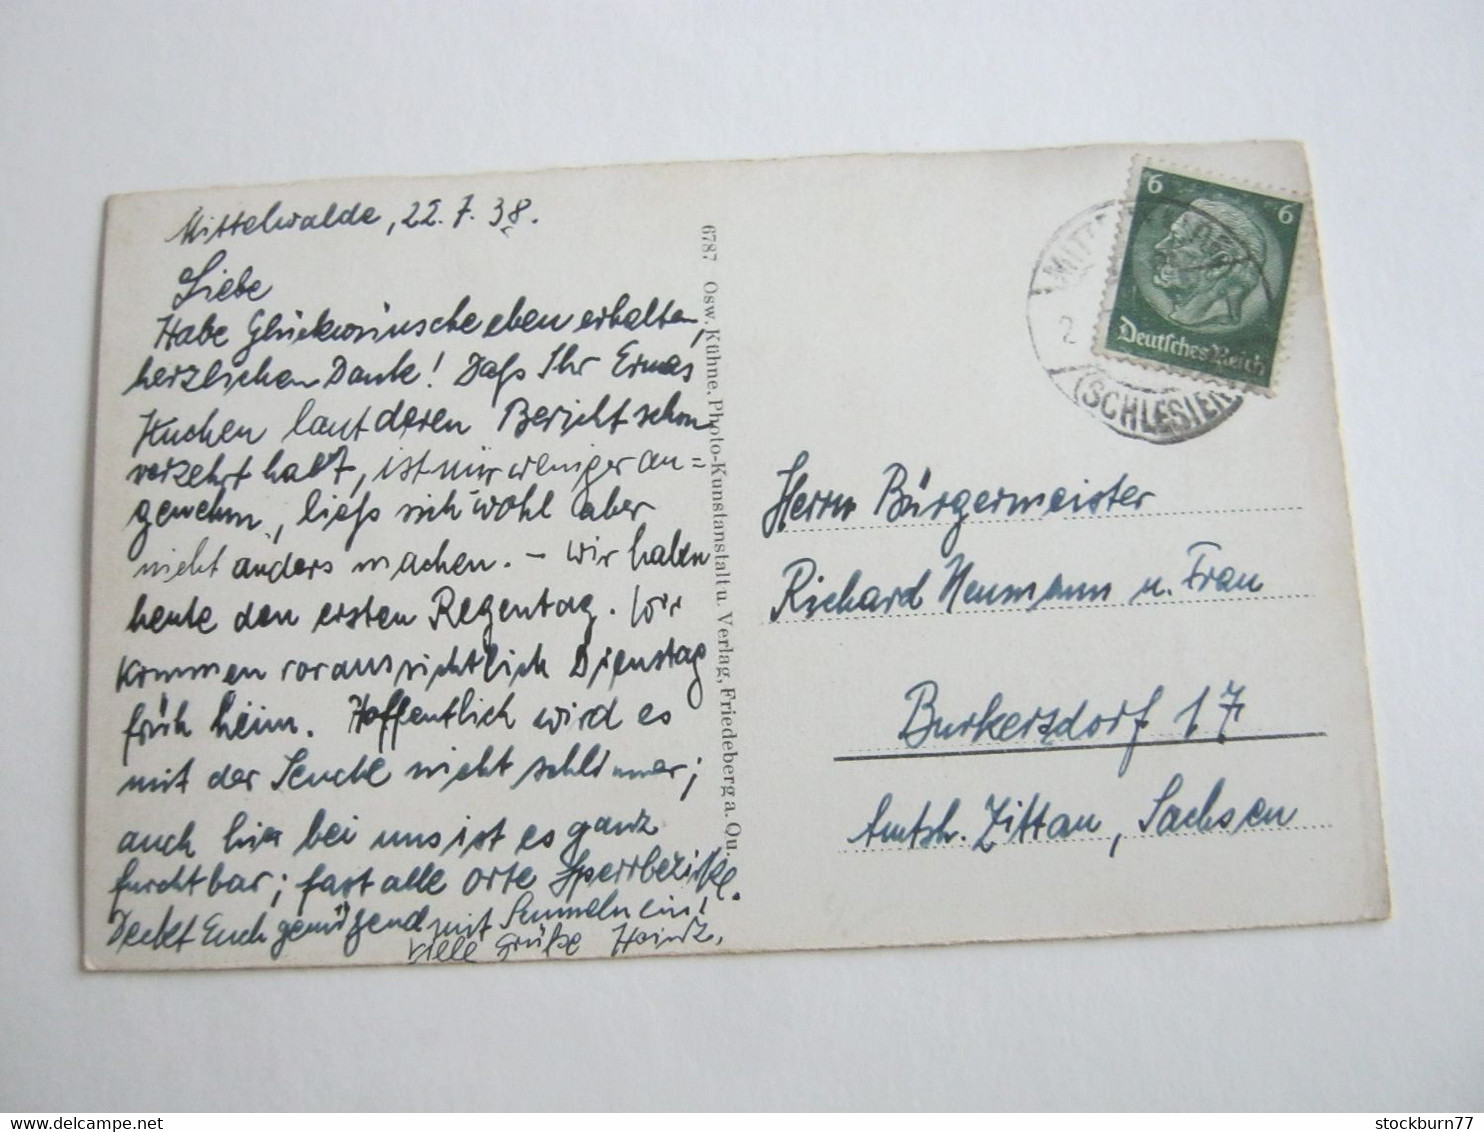 Mittelwalde, 22.7.38.
Liebe
Habe Glückwünsche eben erhalten,
herzlichen Dank! Daß Ihr Ermas
Kuchen laut deren Bericht schon
verzehrt habt, ist mir weniger an=
genehm, ließ sich wohl aber
nicht anders machen. – Wir haben
heute den ersten Regentag. Wir
kommen voraussichtlich Dienstag
früh heim. Hoffentlich wird es
mit der Seuche nicht schlimmer;
auch hier bei uns ist es ganz
furchtbar; fast alle Orte Sperrbezirke.
Deckt Euch genügend mit Semmeln ein!
Viele Grüße Heinz.
6787 Osw. Kühne, Photo-Kunstanstalt u. Verlag, Friedeberg a. Qu.
6 6
Deutsches Reich
(SCHLESIEN)
Herrn Bürgermeister
Richard Neumann u. Frau
Burkersdorf 17
Amtsh. Zittau, Sachsen
stockburn77